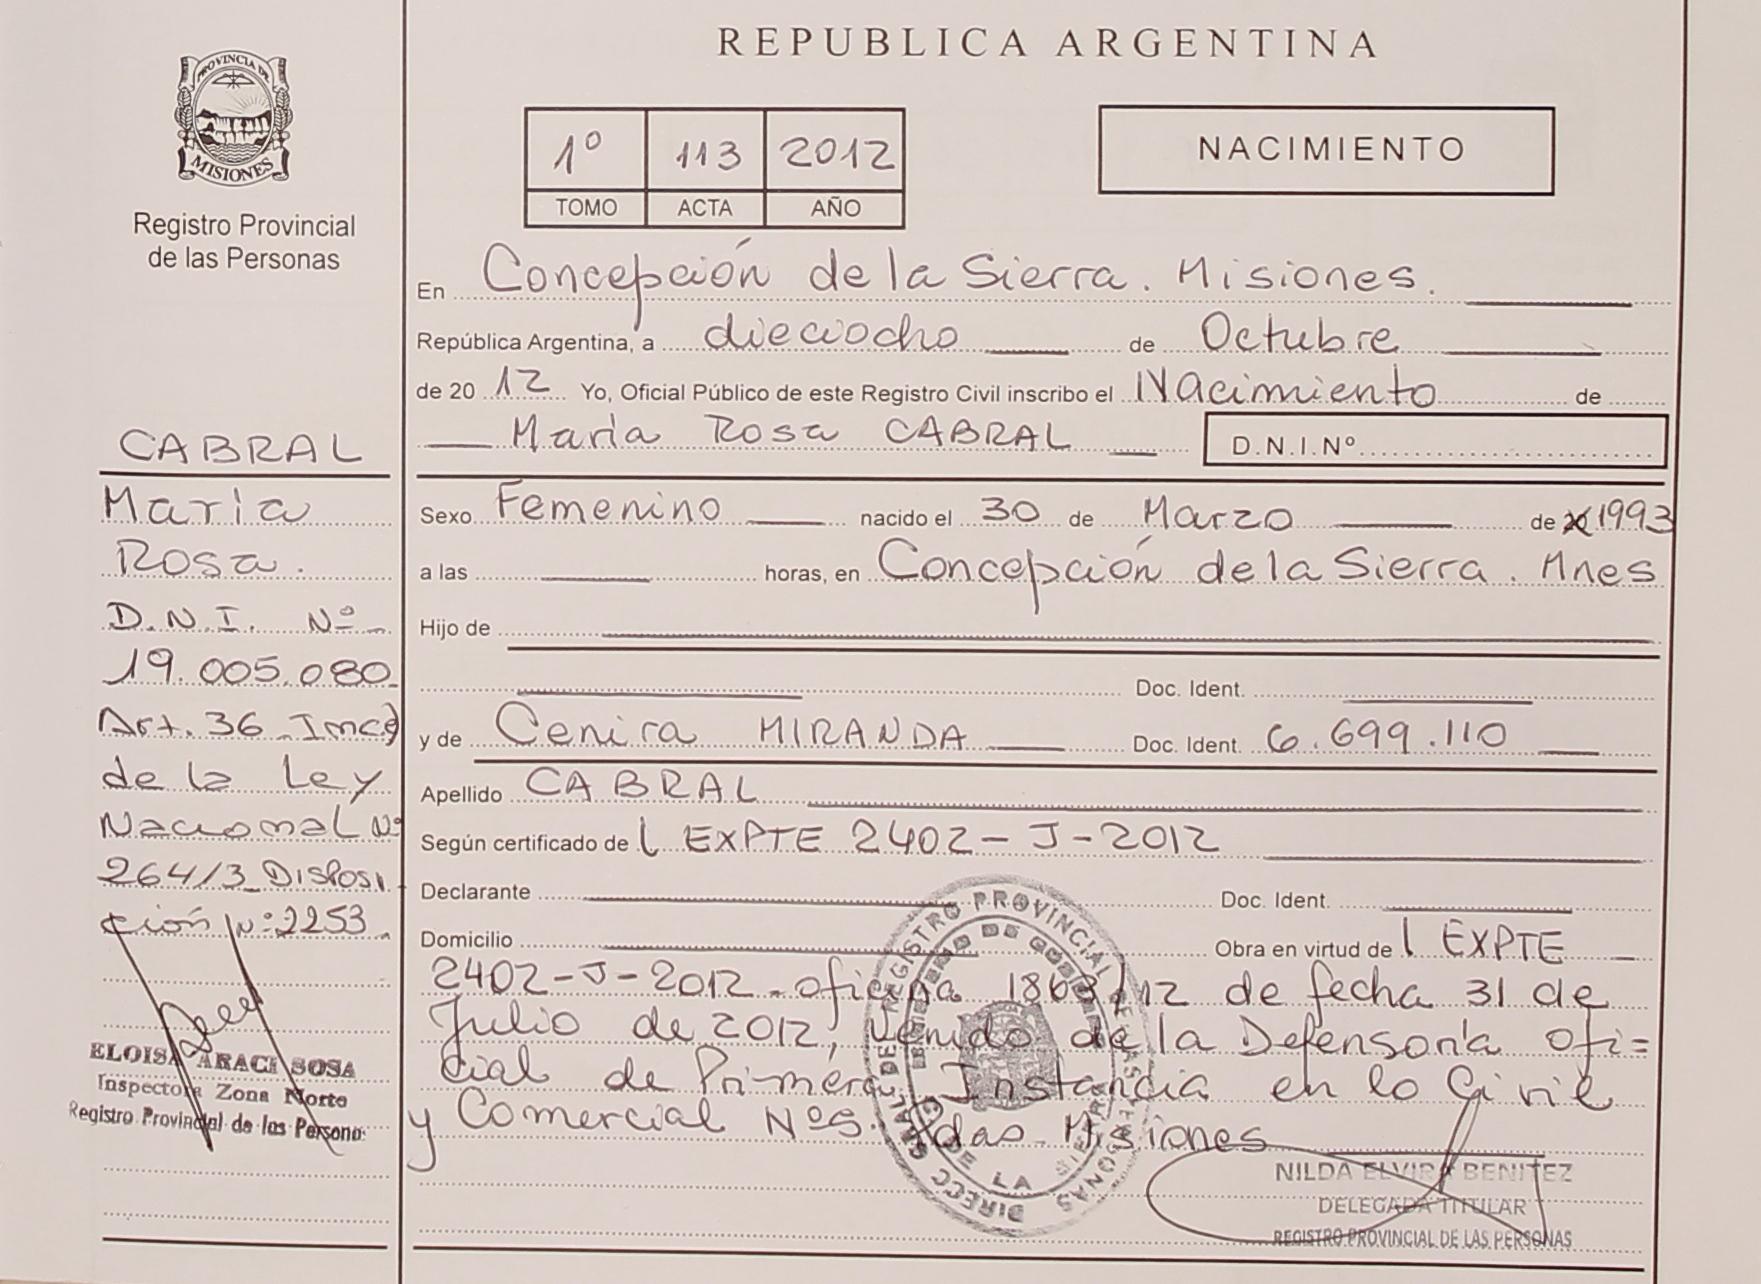 PROVINCIA DE
MISIONES
Registro Provincial
de las Personas
CABRAL
María
Rosa.
D.N.I. Nº
19.005.080
Art. 36 Inc c)
de la Ley
Nacional Nº
264/13 Disposi
ción Nº 2253
ELOISA ARACI SOSA
Inspectora Zona Norte
Registro Provincial de las Personas
REPUBLICA ARGENTINA
1º 113 2012
TOMO ACTA AÑO
NACIMIENTO
En Concepción de la Sierra. Misiones.
República Argentina, a dieciocho de Octubre
de 20 12 Yo, Oficial Público de este Registro Civil inscribo el Nacimiento de
María Rosa CABRAL D.N.I.Nº
Sexo Femenino nacido el 30 de Marzo de 1993
a las horas, en Concepción de la Sierra. Mnes
Hijo de
Doc. Ident.
y de Cenira MIRANDA Doc. Ident. 6.699.110
Apellido CABRAL
Según certificado de l EXPTE 2402-J-2012
Declarante Doc. Ident.
Domicilio Obra en virtud de l EXPTE
2402-J-2012 1863/12 de fecha 31 de
Julio de 2012, venido de la Defensoría ofi=
cial de Primera Instancia en lo Civil
y Comercial Nº5. Pdas. Misiones
DIRECC GRAL DE REGISTRO PROVINCIAL DE LAS PERSONAS
DE LA SIERRA
NILDA ELVIRA BENITEZ
DELEGADA TITULAR
REGISTRO PROVINCIAL DE LAS PERSONAS